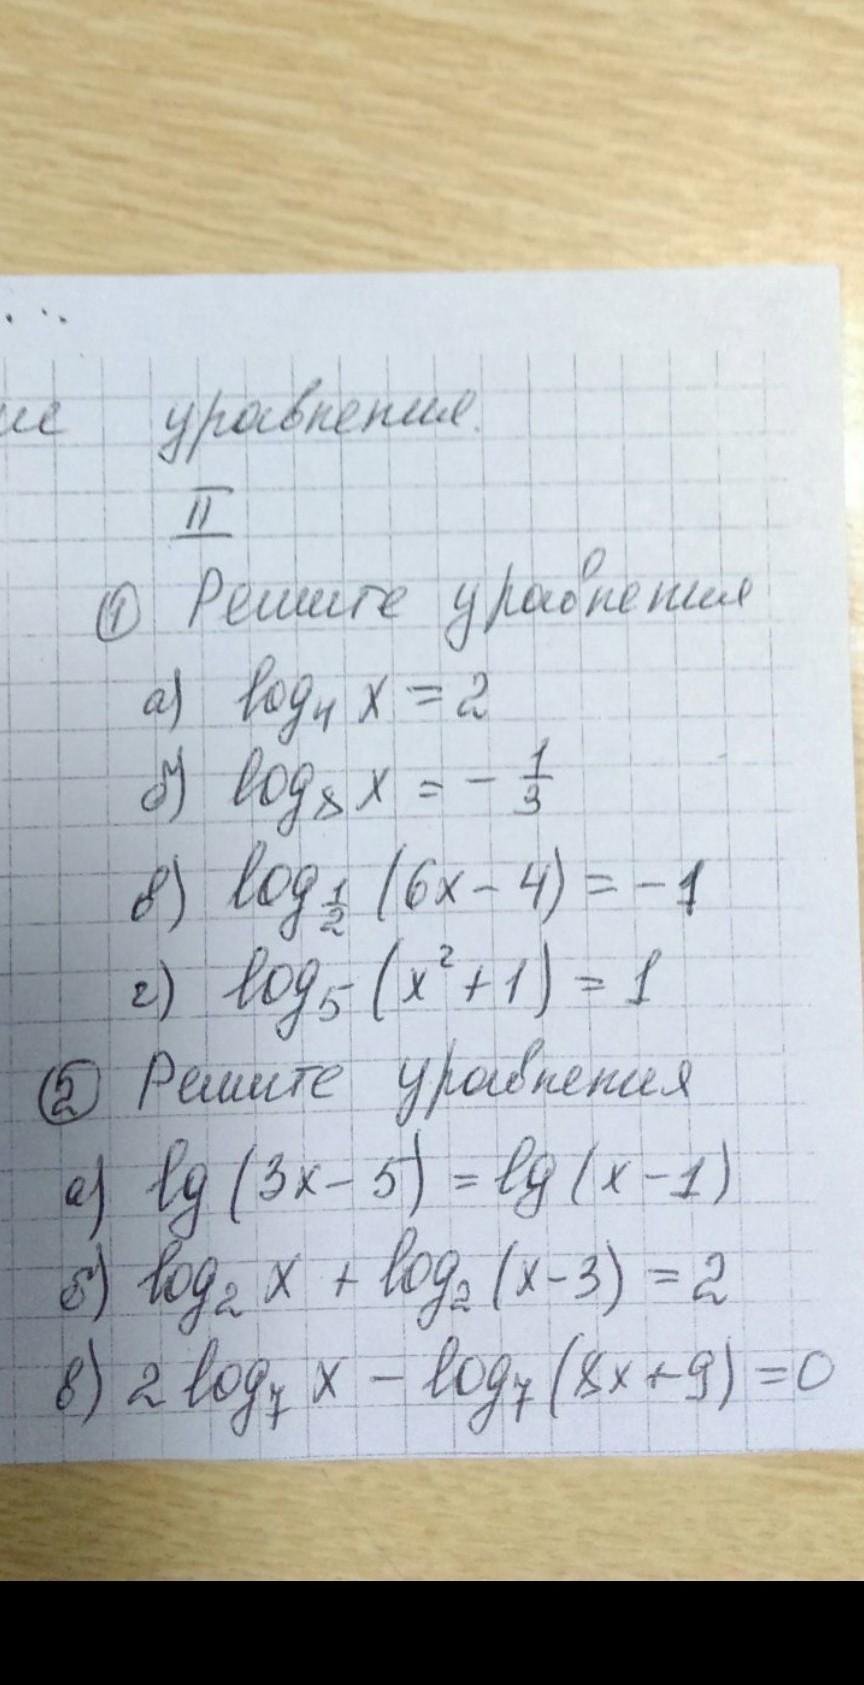 уравнения.
II
① Решите уравнения
а) log₄ x = 2
б) log₈ x = - 1/3
в) log_{1/2} (6x - 4) = -1
г) log₅ (x² + 1) = 1
② Решите уравнения
а) lg (3x - 5) = lg (x - 1)
б) log₂ x + log₂ (x - 3) = 2
в) 2 log₇ x - log₇ (8x + 9) = 0